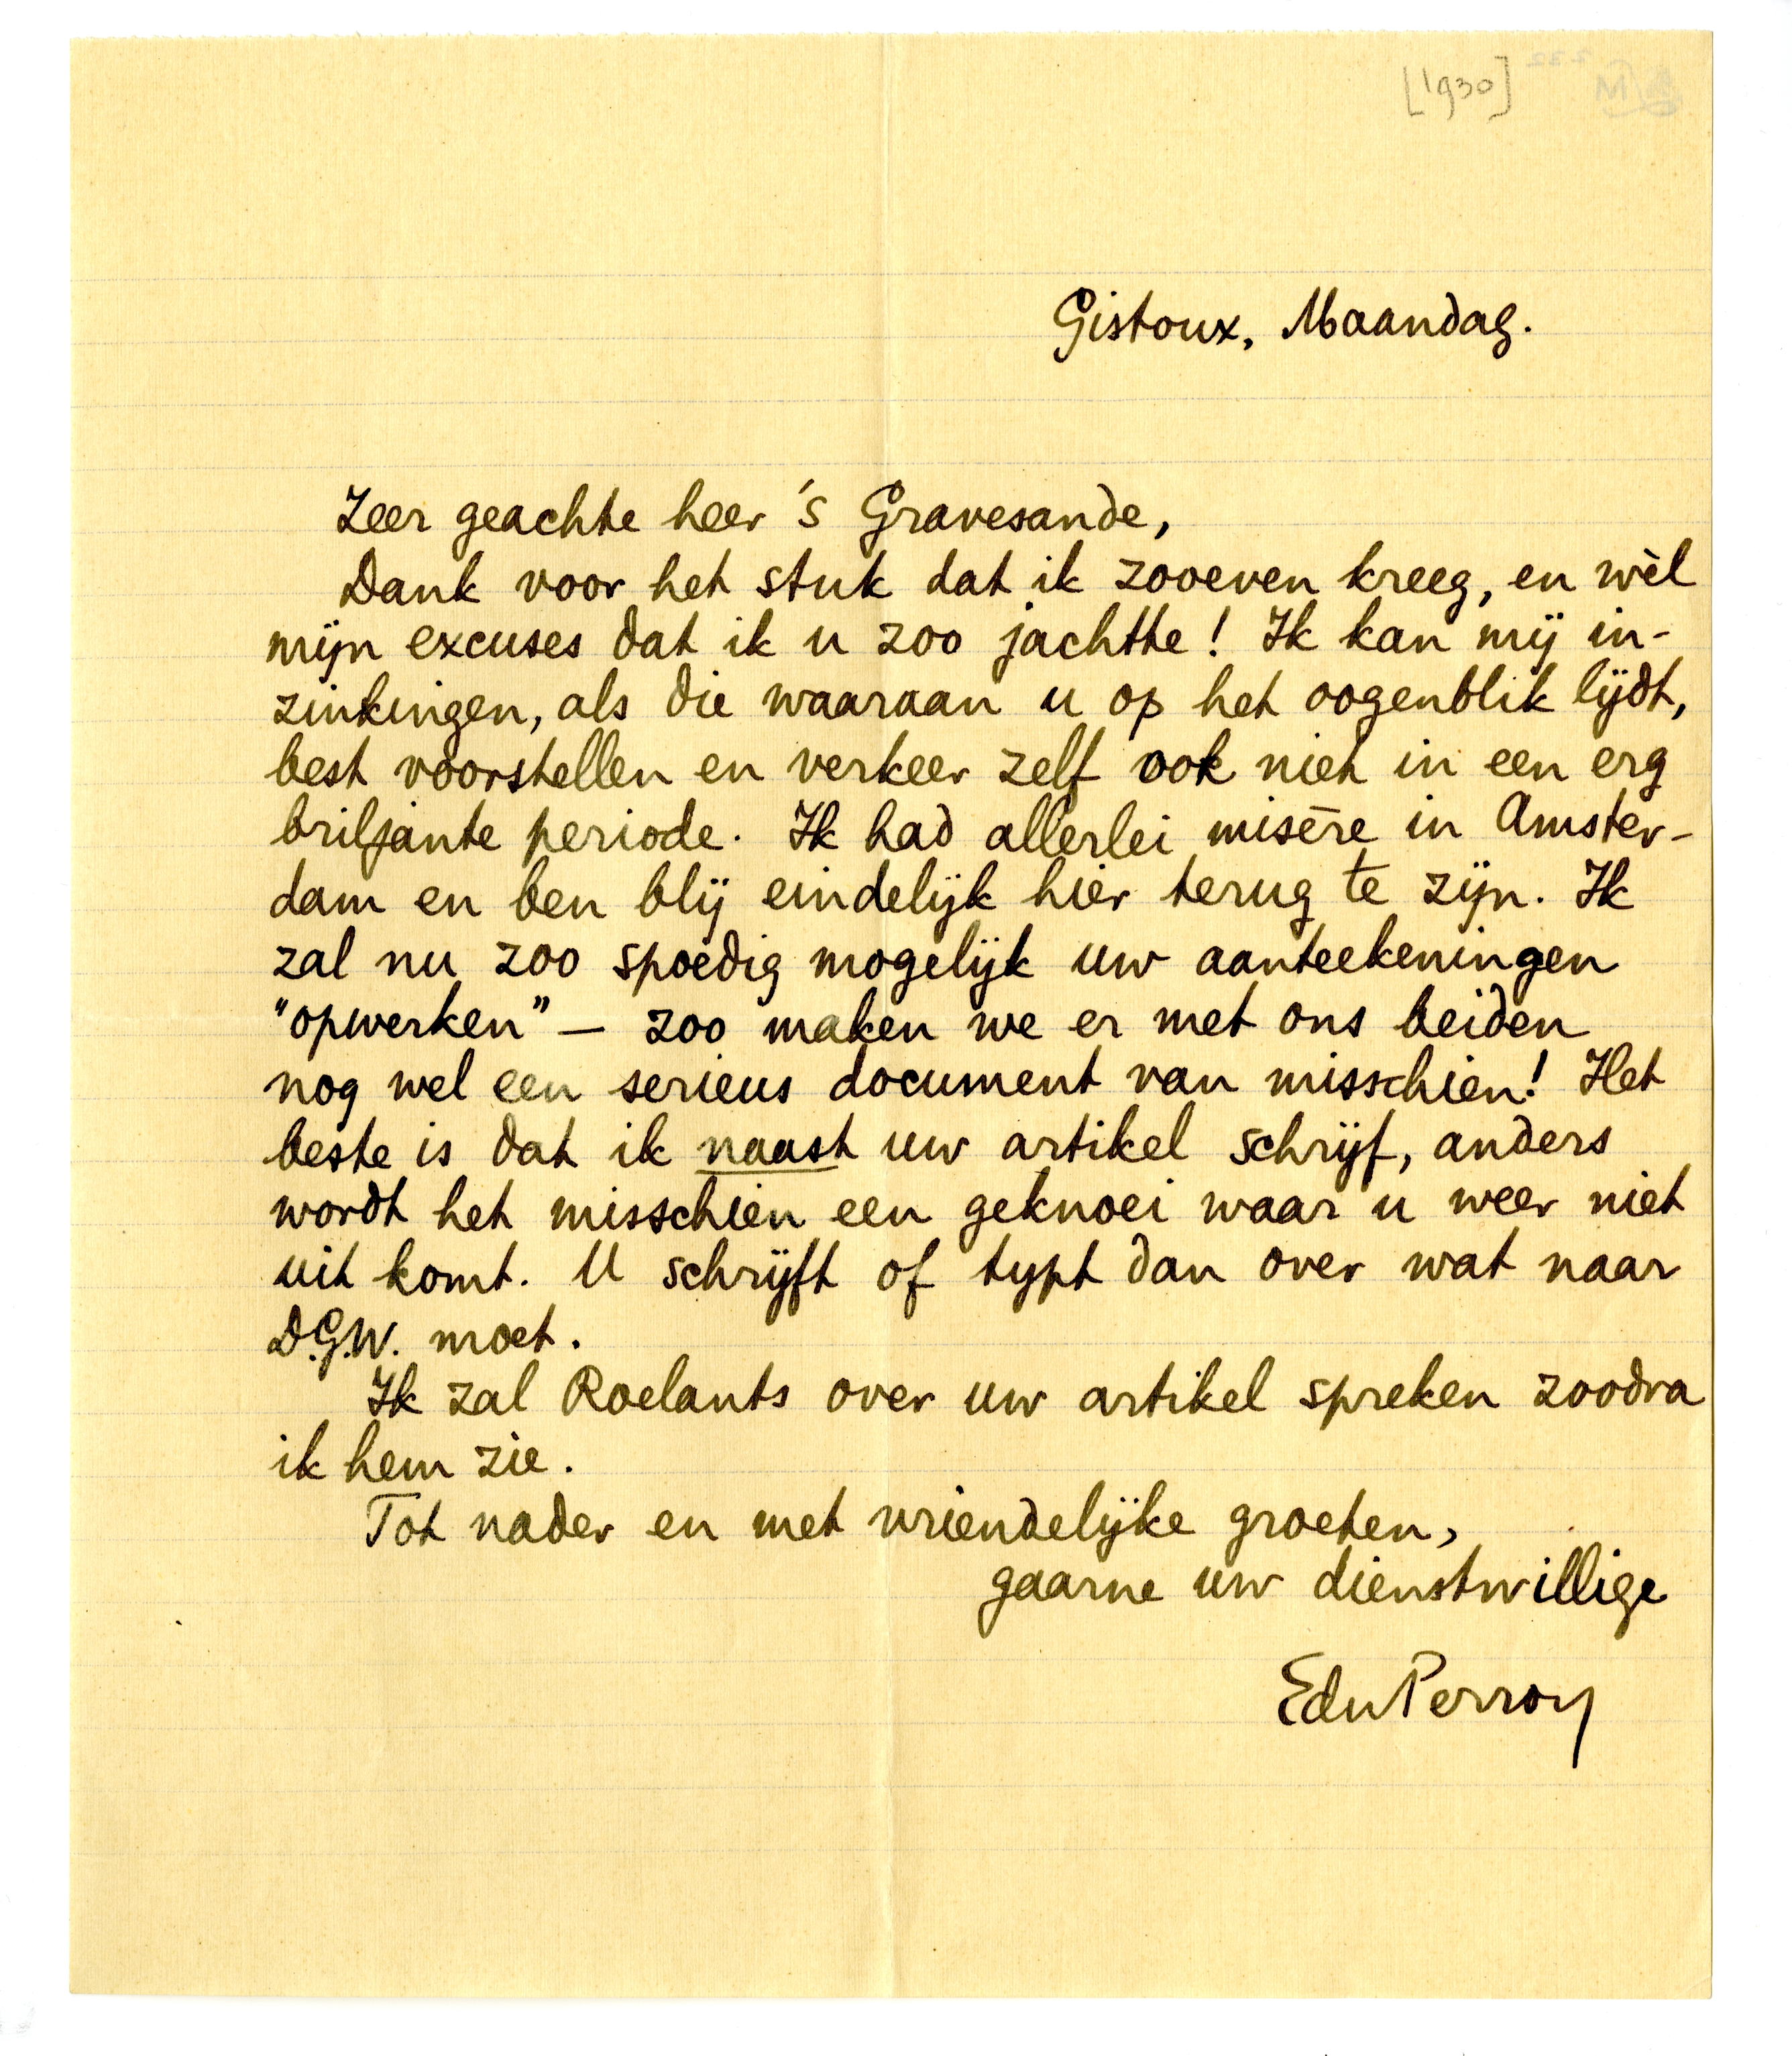 [1930]
Gistoux, Maandag.
Zeer geachte heer 's Gravesande,
Dank voor het stuk dat ik zooeven kreeg, en wèl
mijn excuses dat ik u zoo jachtte! Ik kan mij in-
zinkingen, als die waaraan u op het oogenblik lijdt,
best voorstellen en verkeer zelf ook niet in een erg
briljante periode. Ik had allerlei misère in Amster-
dam en ben blij eindelijk hier terug te zijn. Ik
zal nu zoo spoedig mogelijk uw aanteekeningen
"opwerken" — zoo maken we er met ons beiden
nog wel een serieus document van misschien! Het
beste is dat ik naast uw artikel schrijf, anders
wordt het misschien een geknoei waar u weer niet
uit komt. U schrijft of typt dan over wat naar
D.G.W. moet.
Ik zal Roelants over uw artikel spreken zoodra
ik hem zie.
Tot nader en met vriendelijke groeten,
gaarne uw dienstwillige
EduPerron